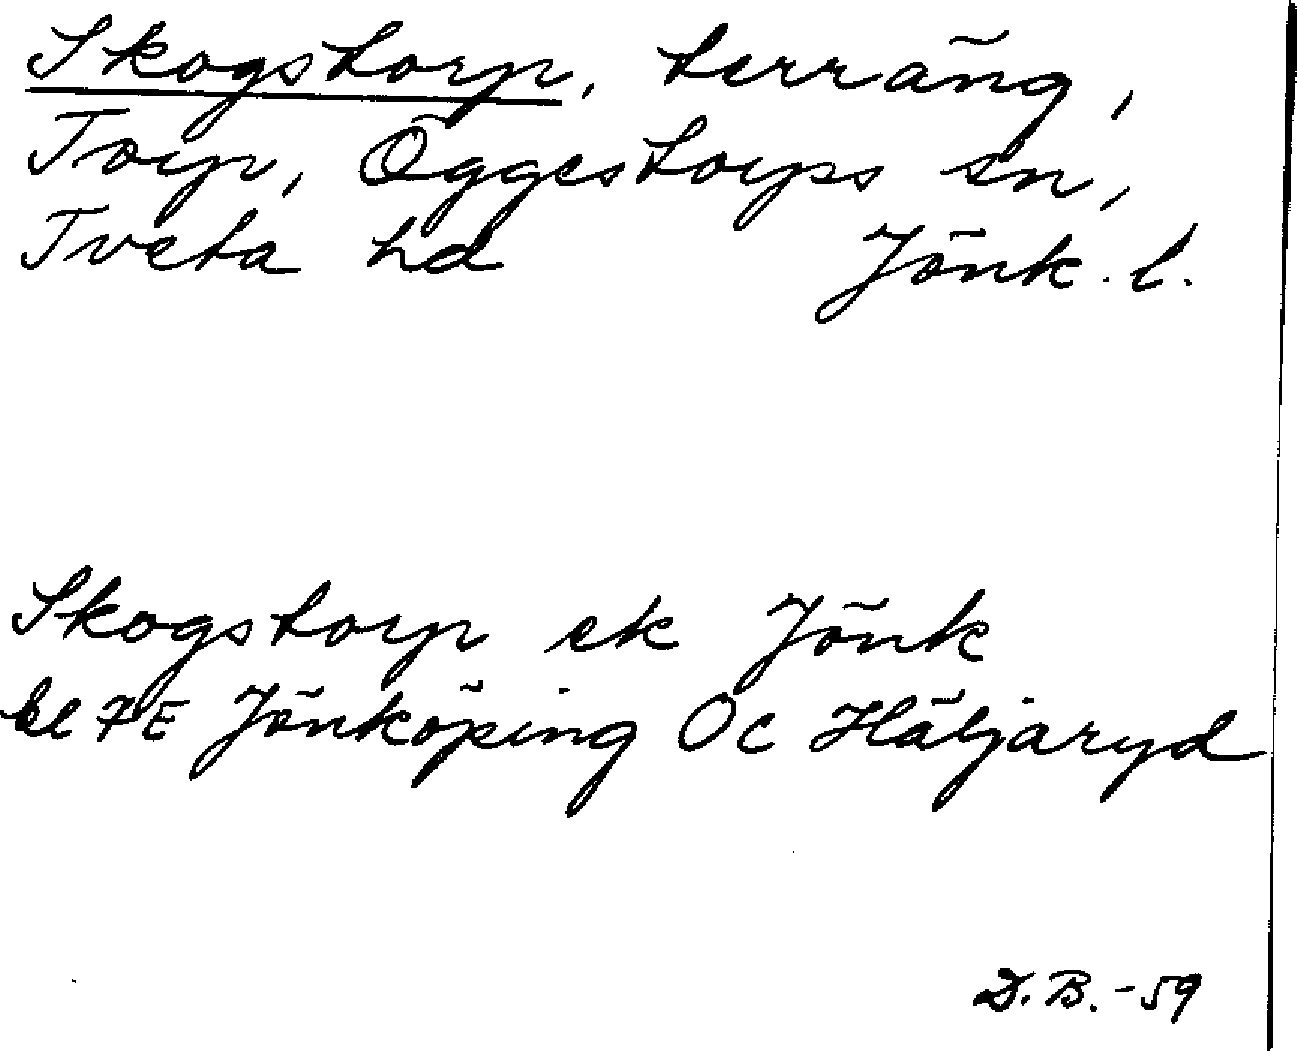 Skogstorp, terräng,
Torp, Öggestorps sn,
Tveta hd Jönk. l.
Skogstorp ek Jönk
bl 7E Jönköping Öc Häljaryd
D.B. -59